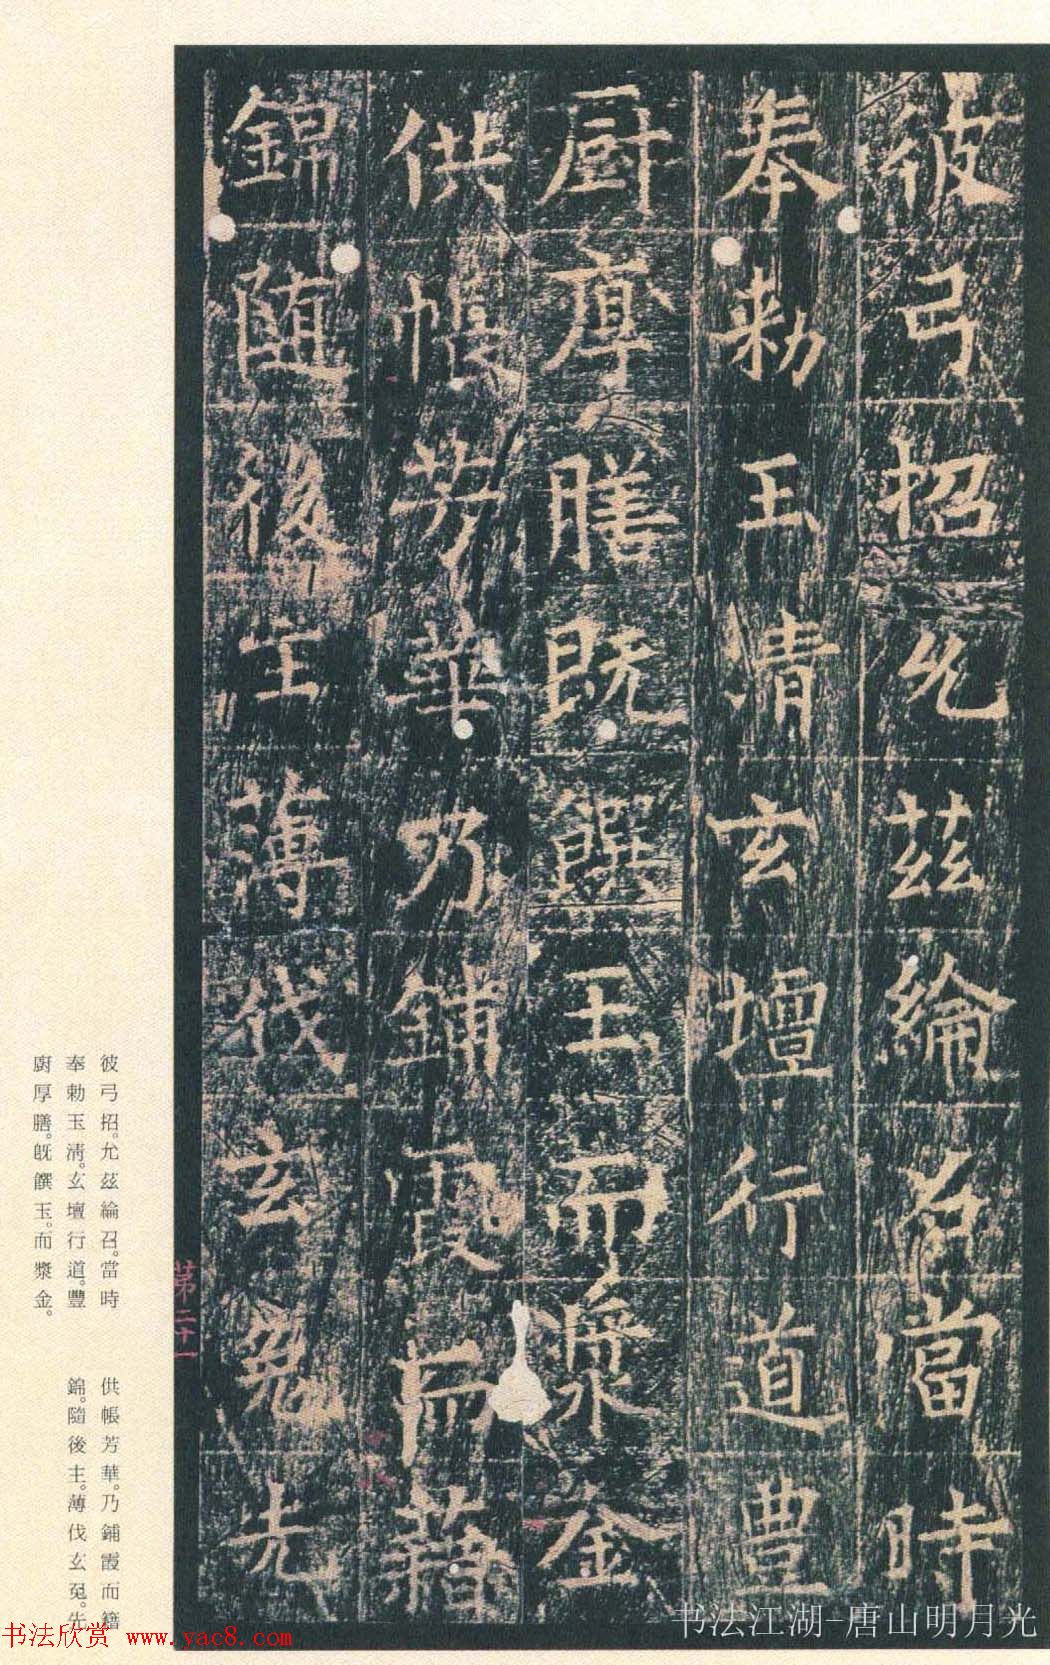 彼弓招允茲綸召當時
奉勑玉清玄壇行道豊
厨厚膳既饌玉而漿金
供帳芳華乃鋪霞而藉
錦隨後主薄伐玄兔先
第二十一
彼弓招。允茲綸召。當時
奉勅玉清。玄壇行道。豐
廚厚膳。既饌玉。而漿金。
供帳芳華。乃鋪霞而籍
錦。隨後主。薄伐玄兔。先
书法欣赏 www.yac8.com
书法江湖-唐山明月光